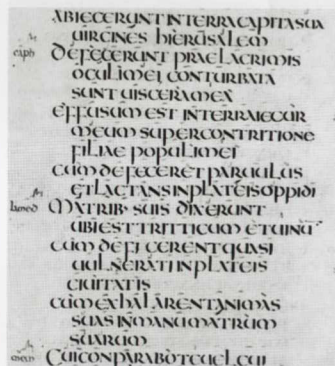 ABIECERUNT IN TERRA CAPITA SUA
UIRGINES HIERUSALEM
caph DEFECERUNT PRAE LACRIMIS
OCULI MEI CONTURBATA
SUNT UISCERA MEA
EFFUSUM EST IN TERRA IECUR
MEUM SUPER CONTRITIONE
FILIAE POPULI MEI
CUM DEFECERET PARUULUS
ET LACTANS IN PLATEIS OPPIDI
lamed MATRIB· SUIS DIXERUNT
UBI EST TRITICUM ET UINU
CUM DEFICERENT QUASI
UULNERATI IN PLATEIS
CIUITATIS
CUM EXHALARENT ANIMAS
SUAS IN MANU MATRUM
SUARUM
mem CUI CONPARABO TE UEL CUI